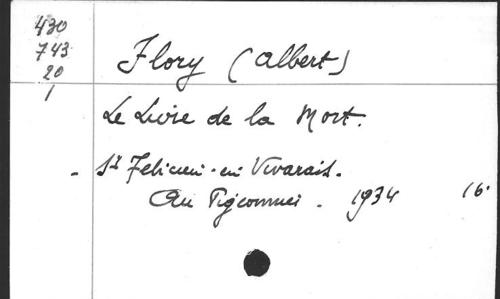 430
743
20
1
Flory (Albert)
Le Livre de la Mort.
- St Felicien-en Vivarais.
Au Pigeonnier. 1934 16°